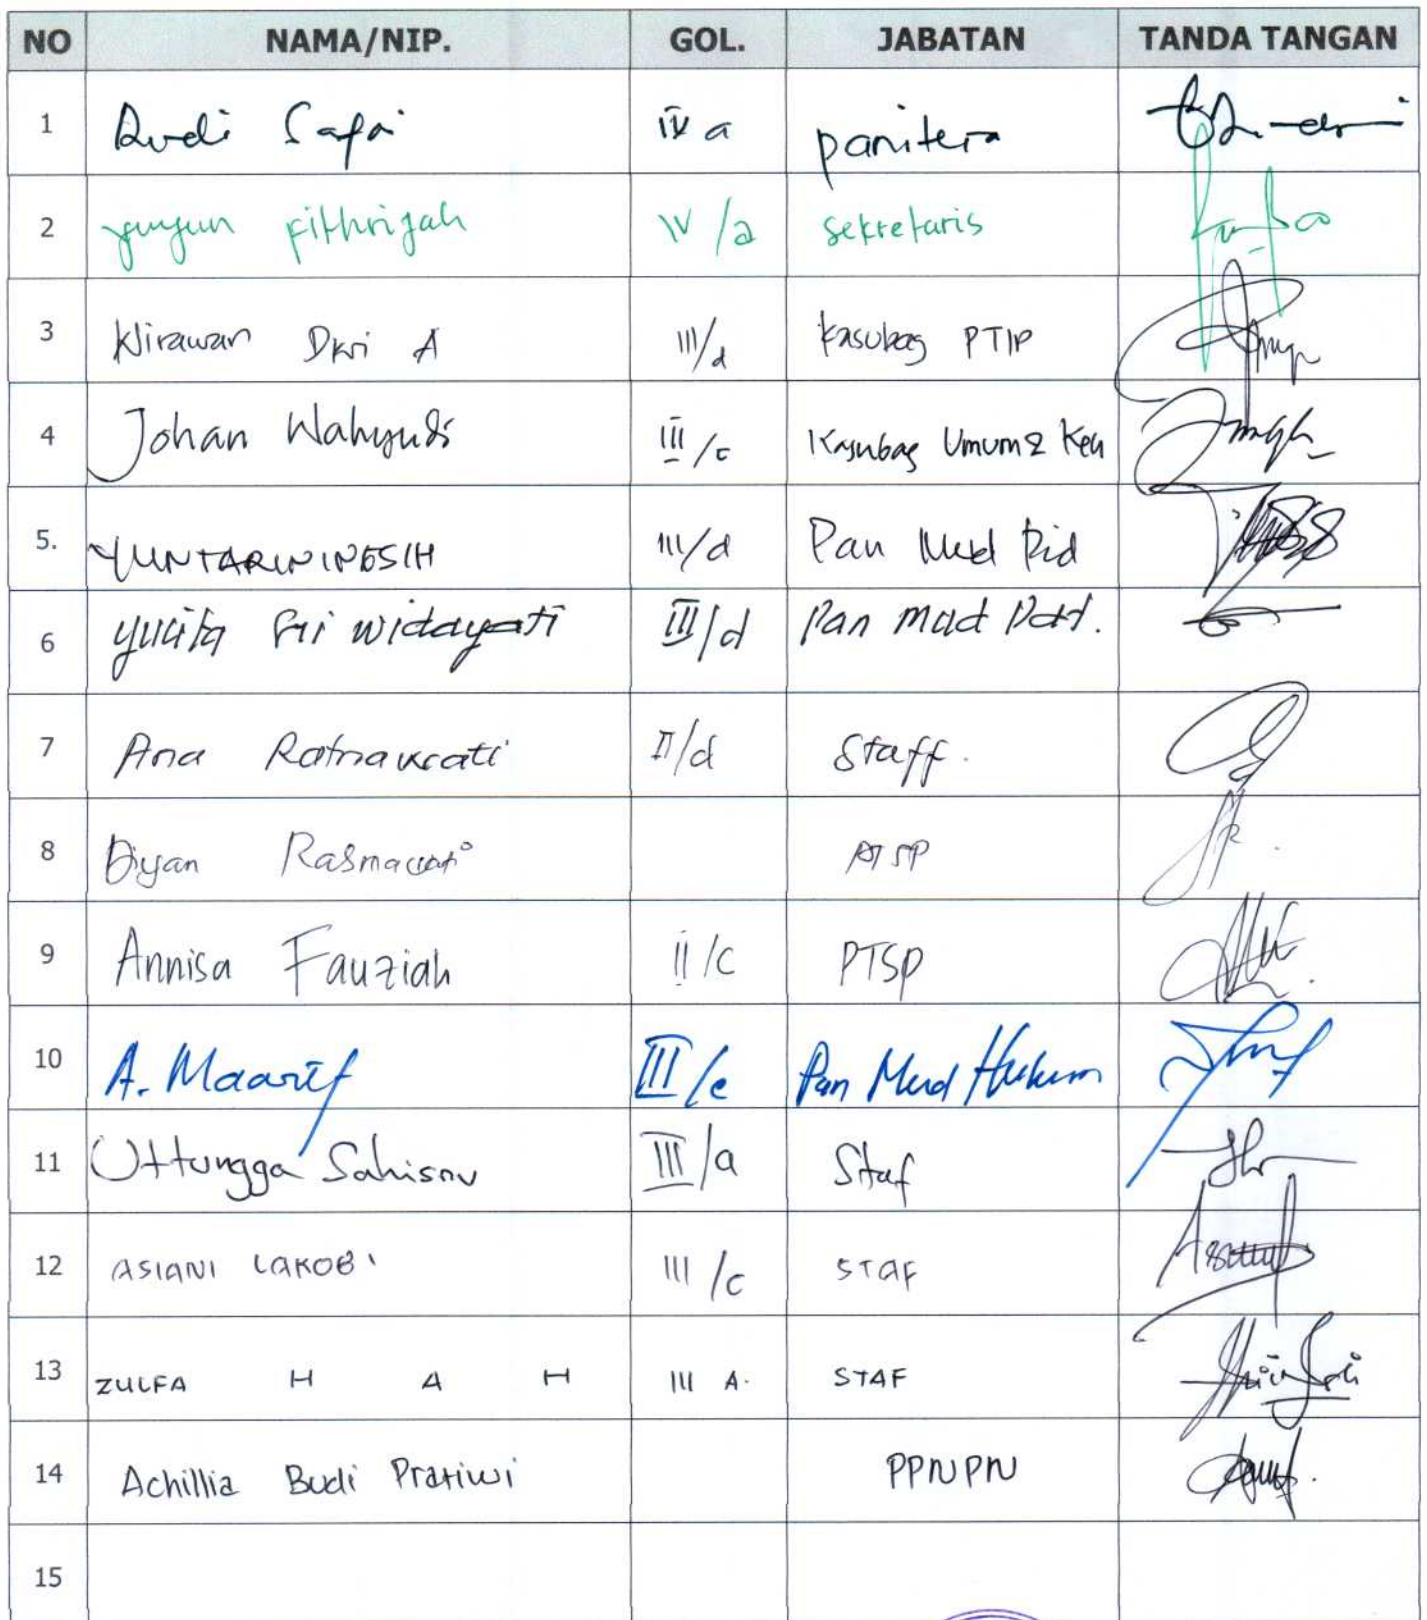 NO NAMA/NIP. GOL. JABATAN TANDA TANGAN
1 Rudi Safai IV a panitera
2 yuyun fithriyah IV/a sekretaris
3 Wirawan Dwi A III/d Kasubag PTIP
4 Johan Wahyudi III/c Kasubag Umum & Keu
5. YUNTARWININGSIH III/d Pan Mud Pid
6 yulita Sri widayati III/d Pan mud Pdt.
7 Ana Ratnawati II/d Staff.
8 Diyan Rasmawati PTSP
9 Annisa Fauziah II/c PTSP
10 A. Maarif III/c Pan Mud Hukum
11 Uttungga Sahisnu III/a Staf
12 ASIANI LAKOBI III/c STAF
13 ZULFA H A H III A. STAF
14 Achillia Budi Pratiwi PPNPN
15